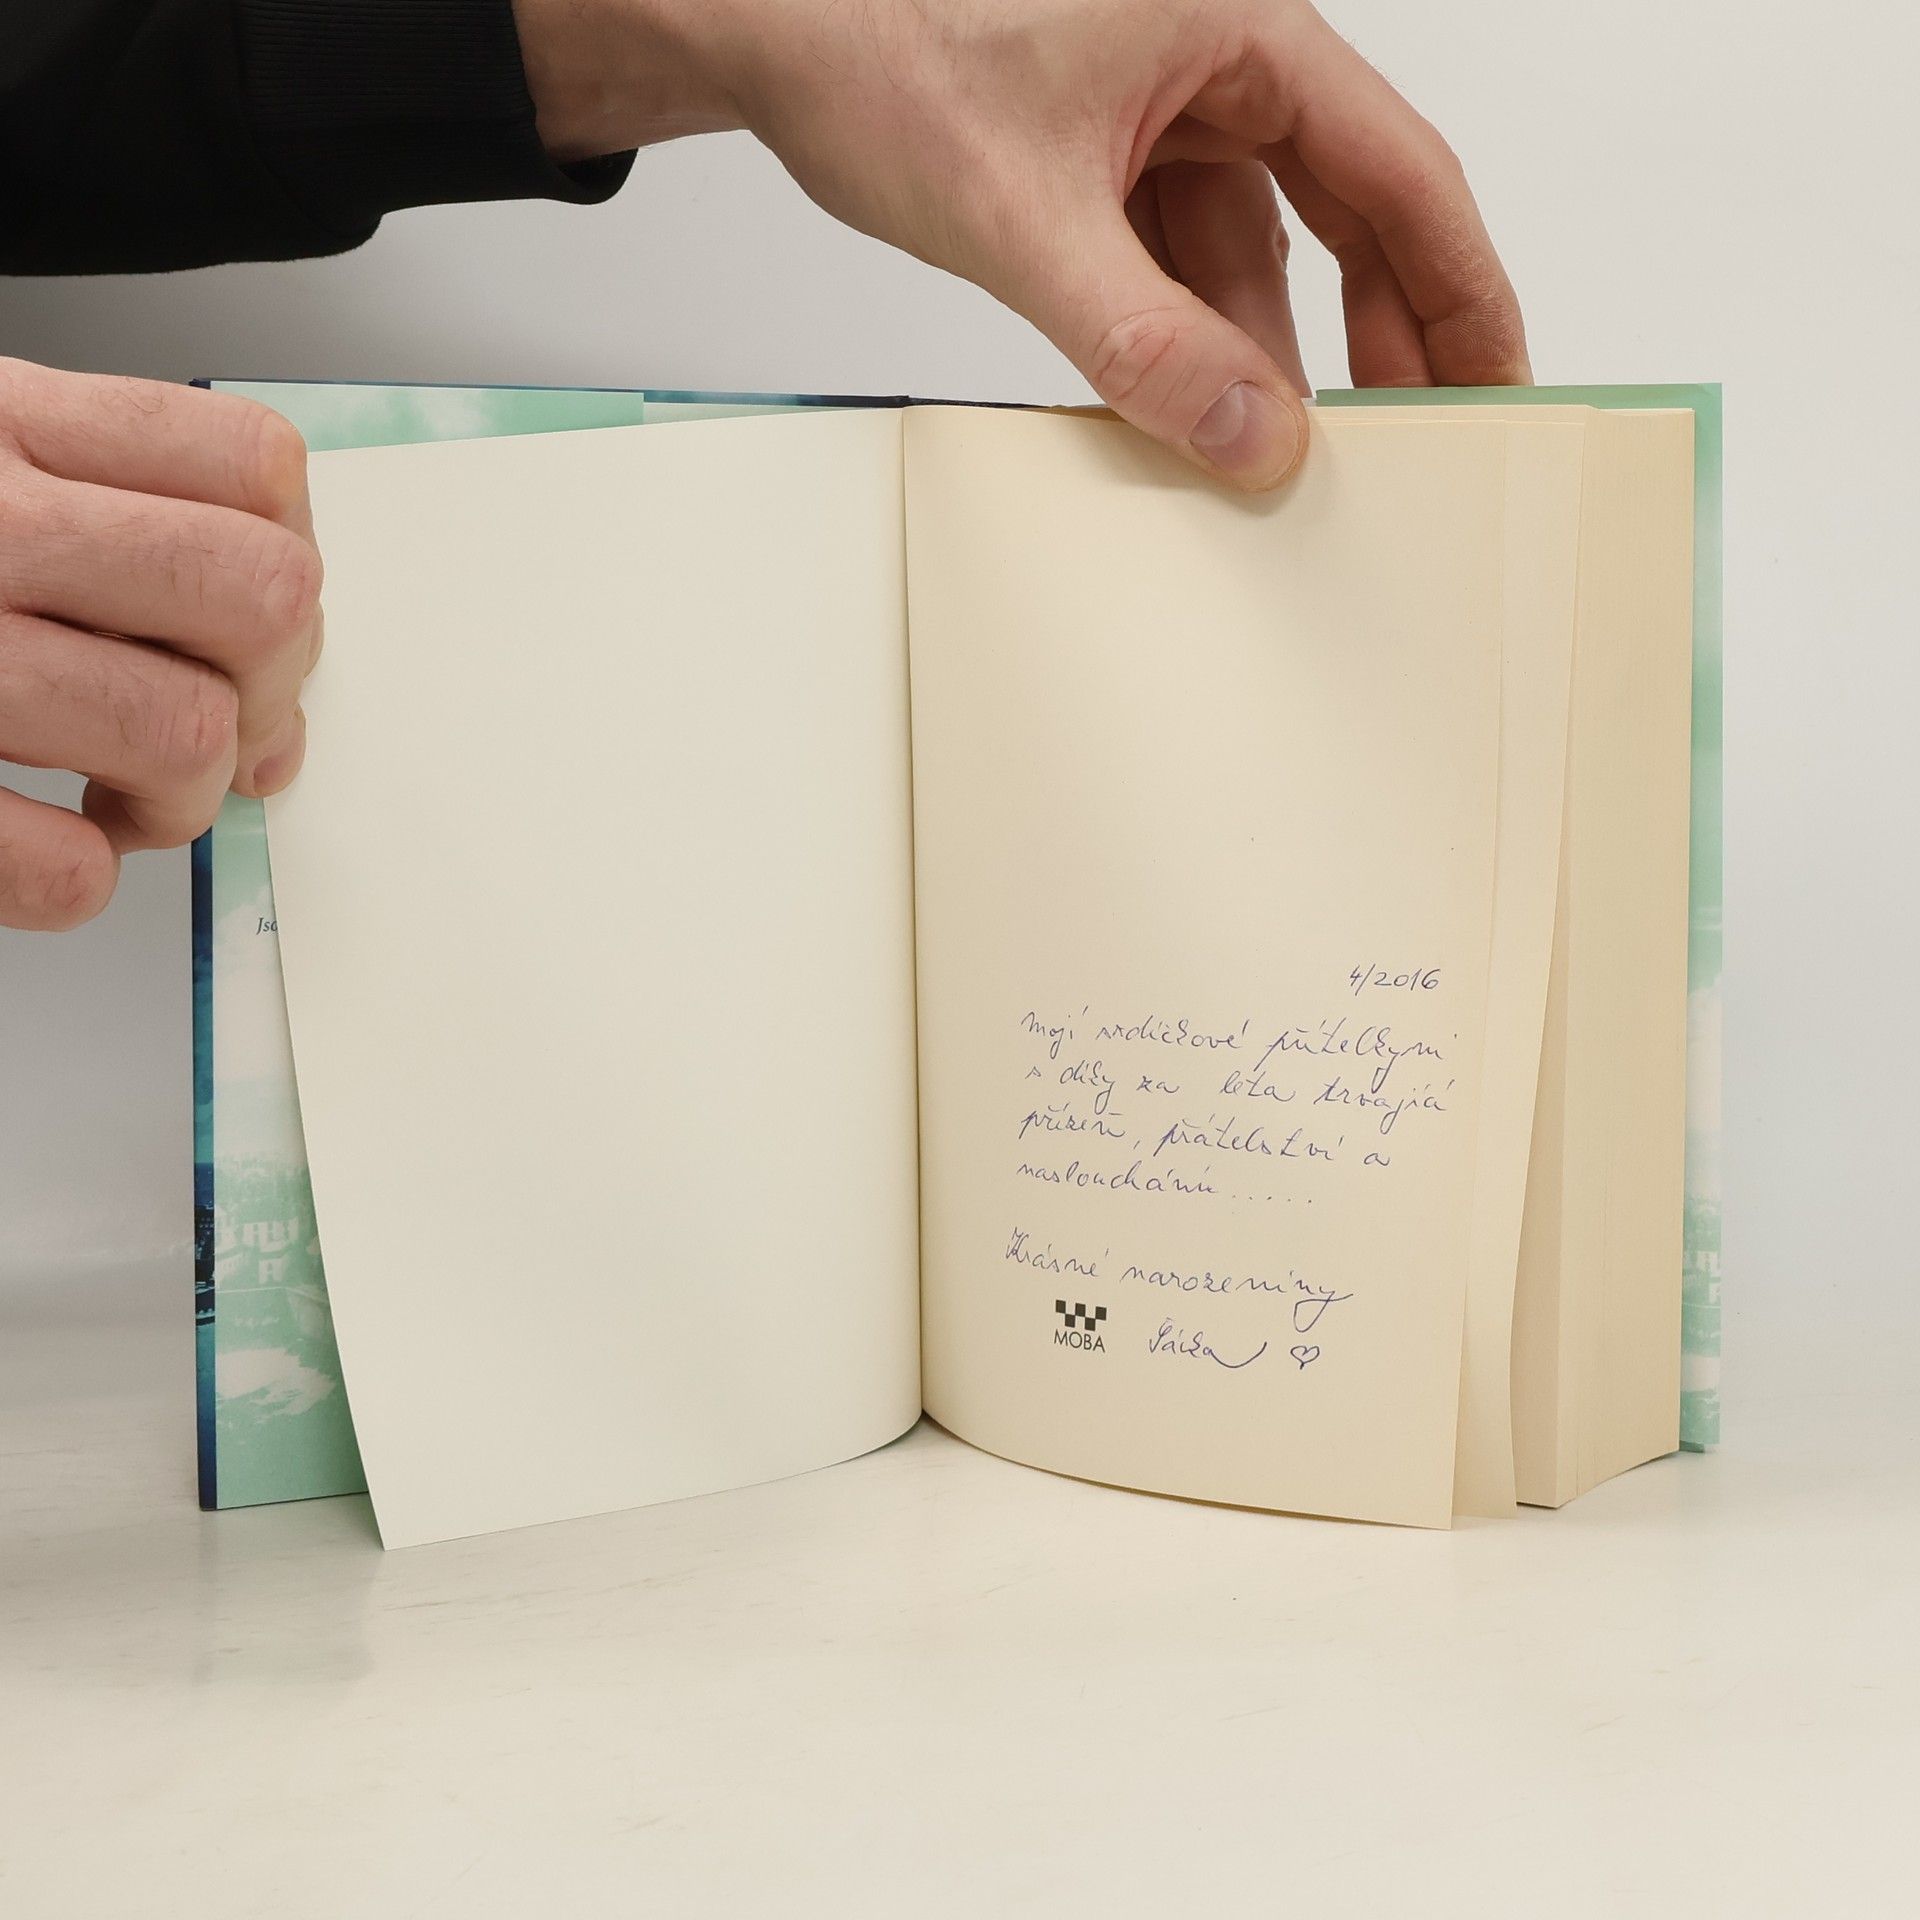 Jso
4/2016
Mojí srdíčkové přítelkyni
s díky za léta trvající
přízeň, přátelství a
naslouchání.....
Krásné narozeniny
MOBA